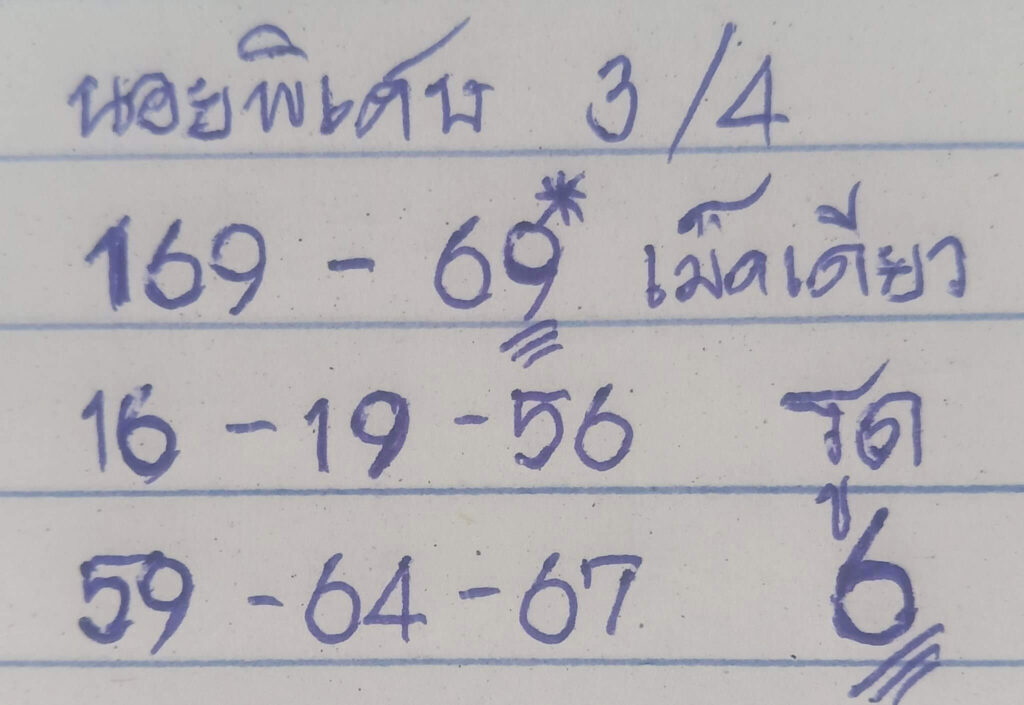 นอยพิเศษ 3/4
169 - 69* เม็ดเดียว
16 - 19 - 56 รูด
59 - 64 - 67 6